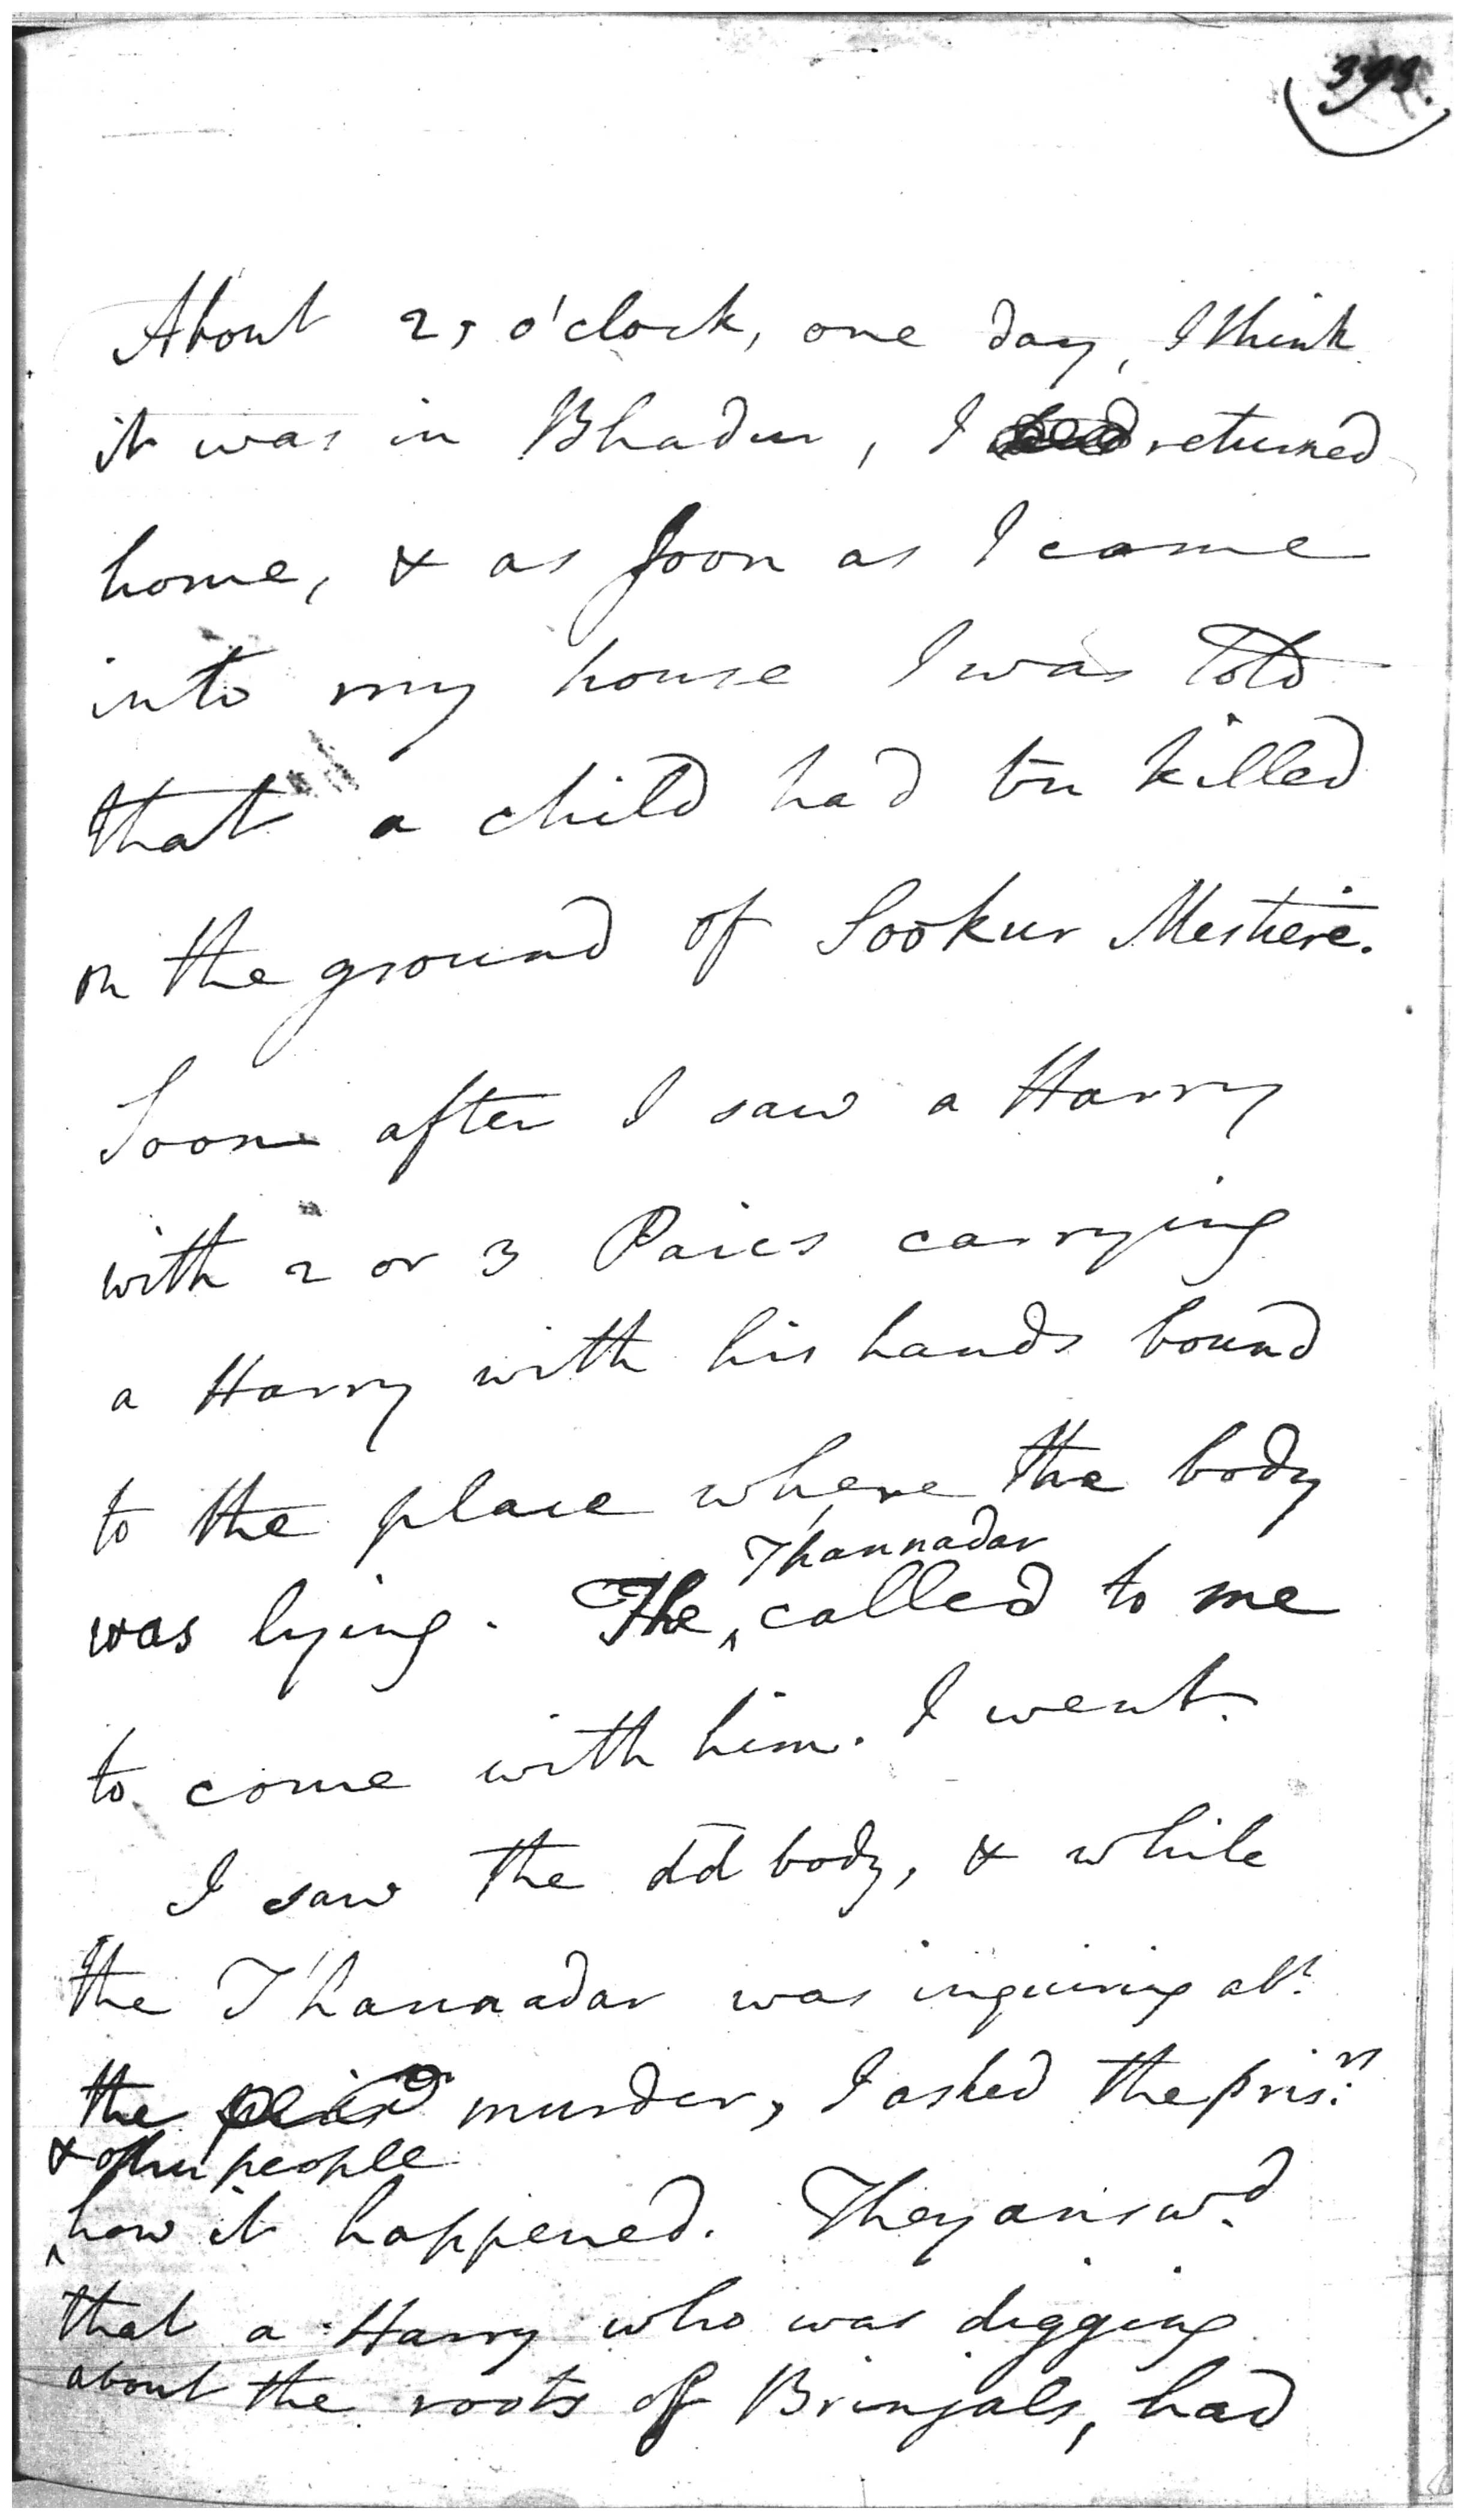 393.
About 2, o'clock, one day, I think
it was in Bhadur, I returned
home, & as soon as I came
into my house I was told
that a child had bn killed
on the ground of Sookur Mestiere.
Soon after I saw a Harry
with 2 or 3 Paics carrying
a Harry with his hands bound
to the place where the body
Thannadar
was lying. The ‸ called to me
to come with him. I went.
I saw the dd body, & while
the Thannadar was inquiring abt.
the murder, I asked the prisrs.
& other people
‸ how it happened. They answd.
that a Harry who was digging
about the roots of Brinjals, had